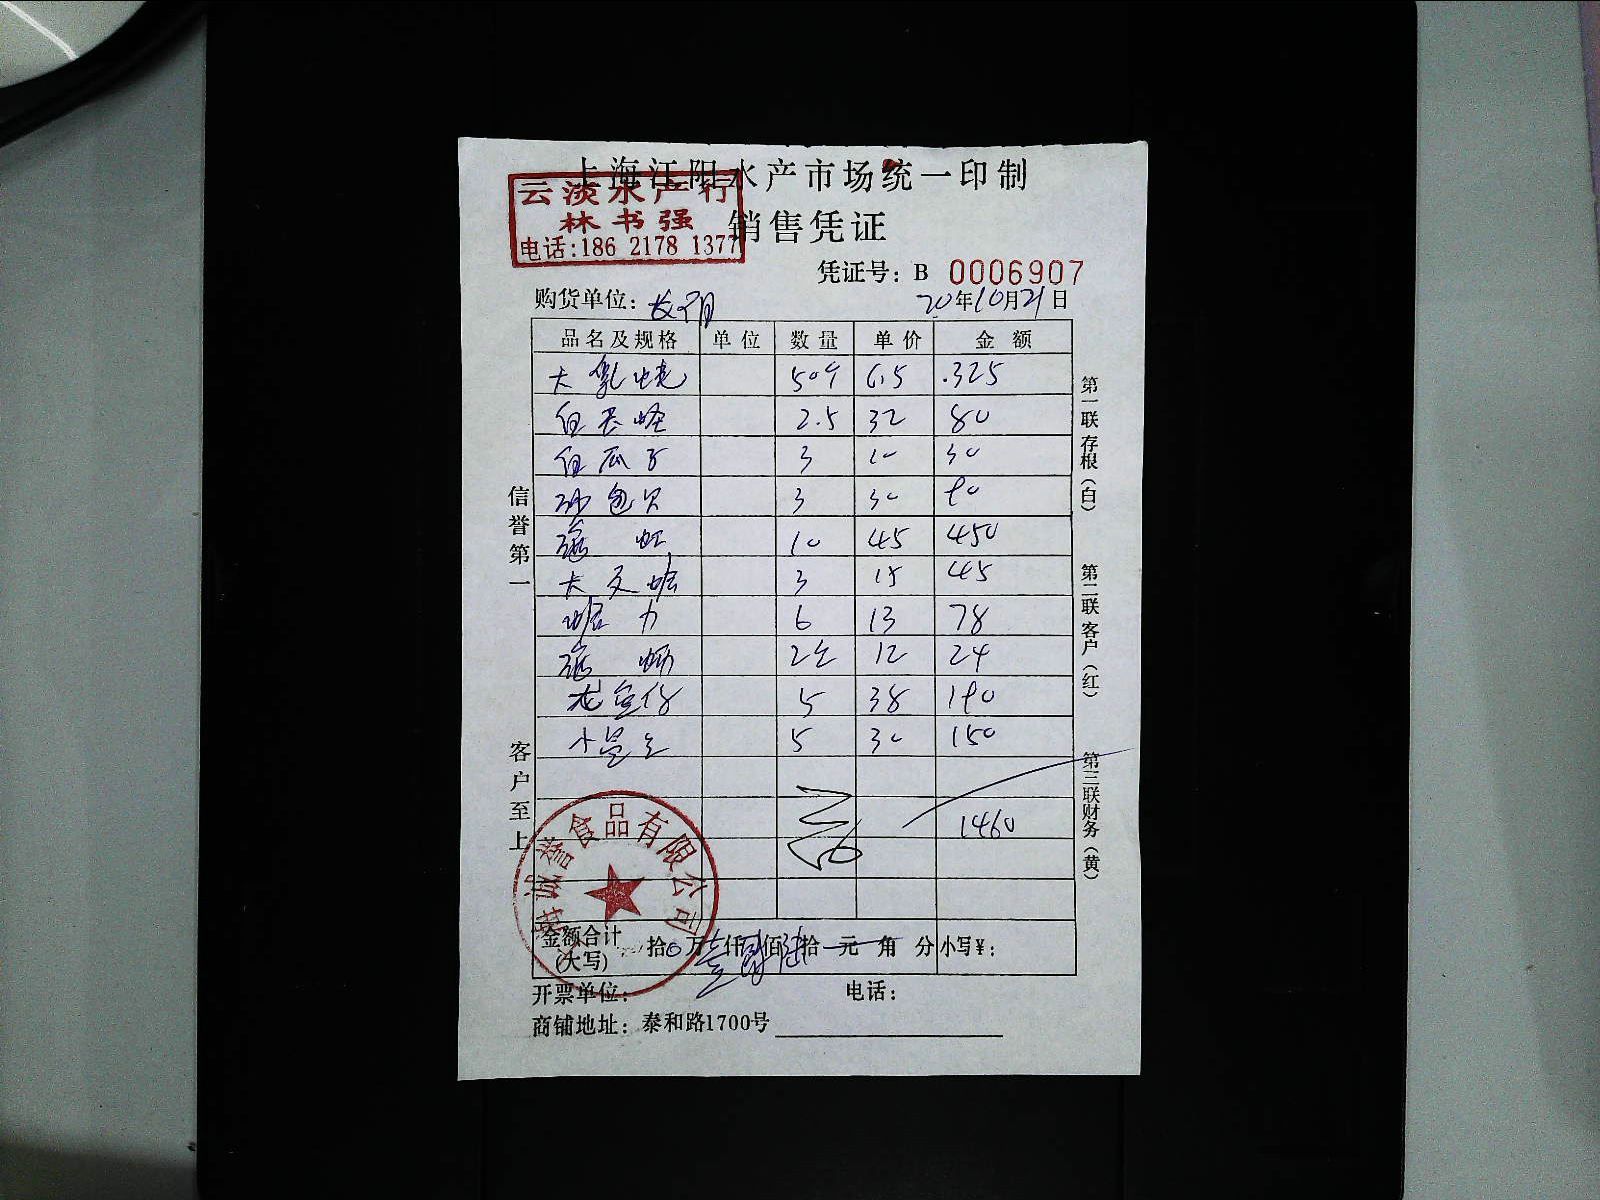 上海江阳水产市场统一印制
云淡水产行
林书强
电话:186 2178 1377
销售凭证
凭证号: B 0006907
购货单位:
20年10月21日
品名及规格 单位 数量 单价 金额
大乳蛏 50斤 6.5 325
白长蛏 2.5 32 80
白瓜子 3 10 30
沙包贝 3 30 90
海虹 10 45 450
大文蛤 3 15 45
蛤力 6 13 78
海蛎 2 12 24
龙鱼仔 5 38 190
5 30 150
1460
金额合计(大写) 拾0万壹仟 佰陆拾元角分 小写¥:
开票单位: 电话:
商铺地址: 泰和路1700号
信誉第一
客户至上
第一联存根(白)
第二联客户(红)
第三联财务(黄)
诚誉食品有限公司